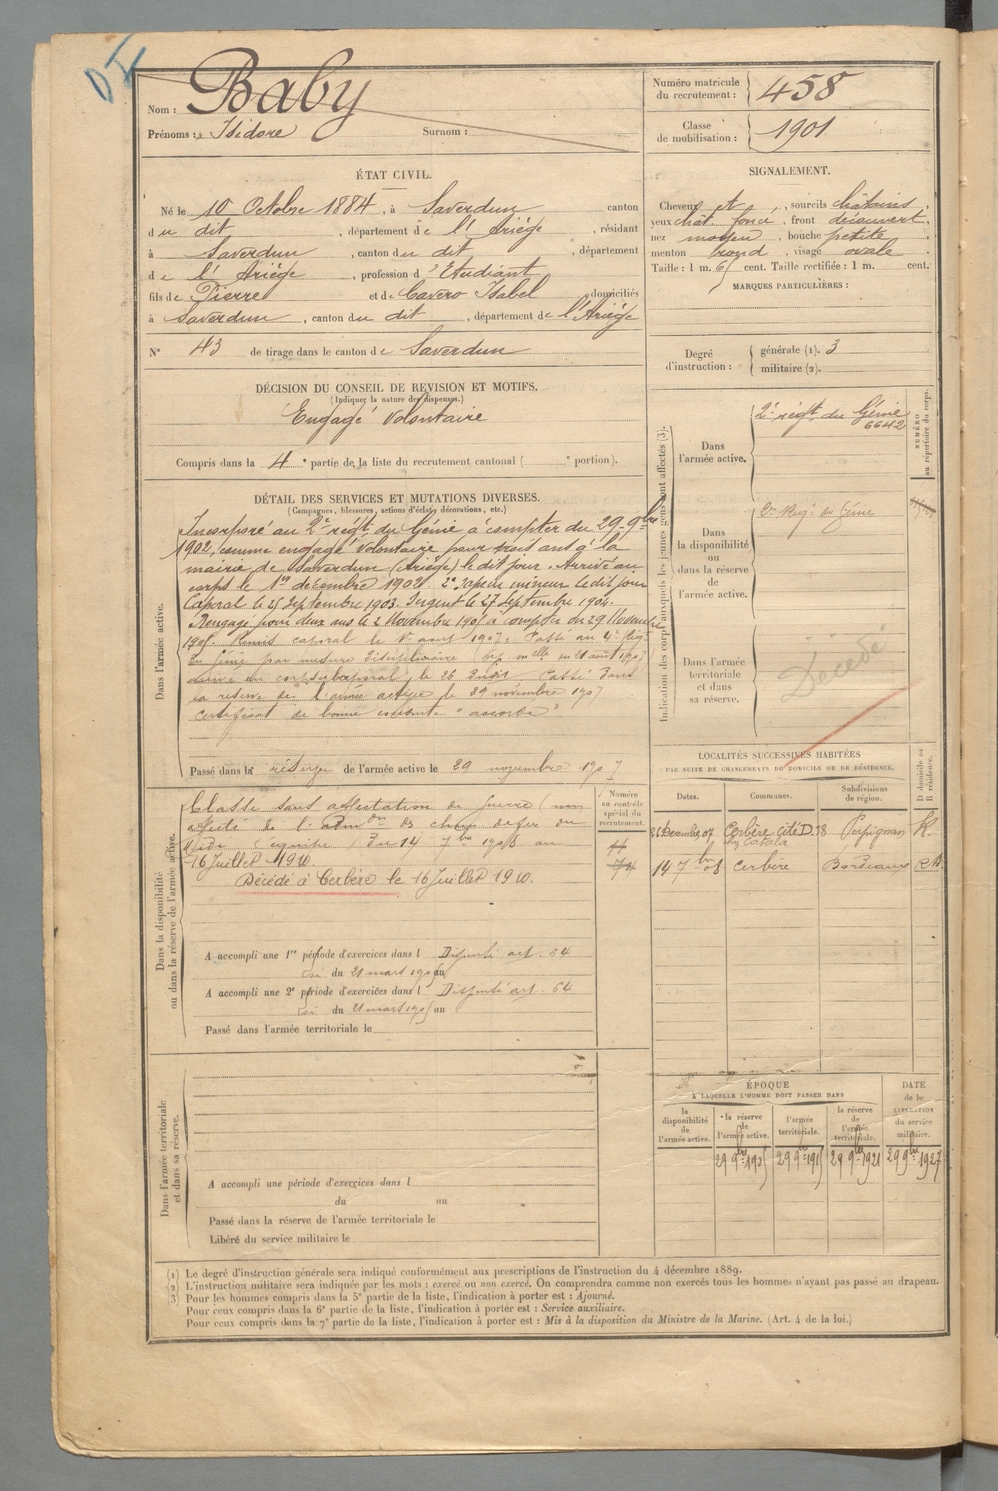 Nom : Baby
Prénoms : Isidore Surnom :
Numéro matricule
du recrutement : 458
Classe
de mobilisation : 1901
ÉTAT CIVIL.
Né le 10 Octobre 1884, à Saverdun canton
du dit, département de l'Ariège, résidant
à Saverdun, canton du dit, département
de l'Ariège, profession d'Etudiant
fils de Pierre et de Cavero Isabel domiciliés
à Saverdun, canton du dit, département de l'Ariège
N° 43 de tirage dans le canton de Saverdun
SIGNALEMENT.
Cheveux et, sourcils châtains,
yeux chât. foncé, front découvert,
nez moyen, bouche petite,
menton rond, visage ovale
Taille : 1 m. 61 cent. Taille rectifiée : 1 m. cent.
MARQUES PARTICULIÈRES :
Degré
d'instruction :
générale (1). 3
militaire (2).
DÉCISION DU CONSEIL DE REVISION ET MOTIFS.
(Indiquer la nature des dispenses.)
Engagé volontaire
Compris dans la 4e partie de la liste du recrutement cantonal ( e portion).
DÉTAIL DES SERVICES ET MUTATIONS DIVERSES.
(Campagnes, blessures, actions d'éclat, décorations, etc.)
Dans l'armée active.
Incorporé au 2e régt du Génie à compter du 29 9bre
1902, comme engagé volontaire pour trois ans à la
mairie de Saverdun (Ariège) le dit jour. Arrivé au
corps le 1er décembre 1902. 2e Sapeur mineur le dit jour
Caporal le 25 Septembre 1903. Sergent le 27 Septembre 1904.
Rengagé pour deux ans le 2 Novembre 1905 à compter du 29 Novembre
1905. Remis caporal le août 1907. Passé au 4e Régt
du Génie par mesure disciplinaire ( mlle du 21 août 1907)
au corps caporal, le 26 dudit. Passé dans
la réserve de l'armée active le 29 novembre 1907
Certificat de bonne conduite "accordé"
Passé dans la réserve de l'armée active le 29 novembre 1907
Indication des corps auxquels les jeunes gens sont affectés (3).
Dans
l'armée active.
2e régt du Génie
6642
NUMÉRO
au répertoire du corps.
Dans
la disponibilité
ou
dans la réserve
de
l'armée active.
2e Régt du Génie
Dans l'armée
territoriale
et dans
sa réserve.
Décédé
LOCALITÉS SUCCESSIVES HABITÉES
PAR SUITE DE CHANGEMENTS DE DOMICILE OU DE RÉSIDENCE.
Dates. Communes. Subdivisions
de région. D domicile ou
R résidence.
26 Décembre 07 Cerbère Cité D. 28 Perpignan R.
chez Catala
14 7bre 08 Cerbère Bordeaux
Dans la disponibilité
ou dans la réserve de l'armée active.
Numéro
au contrôle
spécial du
recrutement.
Classé sans affectation de guerre (non
affecté de l' Admon des chemins de fer du
Midi Du 14 7bre 1908 au
16 Juillet 1910.
Décédé à Cerbère le 16 Juillet 1910.
A accompli une 1re période d'exercices dans l Dispensé art. 64
Loi du 21 mars 1905 au
A accompli une 2e période d'exercices dans l Dispensé art. 64
Loi du 21 mars 1905 au
Passé dans l'armée territoriale le
Dans l'armée territoriale
et dans sa réserve.
A accompli une période d'exercices dans l
du au
Passé dans la réserve de l'armée territoriale le
Libéré du service militaire le
ÉPOQUE
A LAQUELLE L'HOMME DOIT PASSER DANS
DATE
de la
LIBÉRATION
du service
militaire.
la
disponibilité
de
l'armée active.
la réserve
de
l'armée active.
l'armée
territoriale.
la réserve
de
l'armée
territoriale.
29 9bre 1905 29 9bre 1915 29 9bre 1921 29 9bre 1927
(1) Le degré d'instruction générale sera indiqué conformément aux prescriptions de l'instruction du 4 décembre 1889.
(2) L'instruction militaire sera indiquée par les mots : exercé ou non exercé. On comprendra comme non exercés tous les hommes n'ayant pas passé au drapeau.
(3) Pour les hommes compris dans la 5e partie de la liste, l'indication à porter est : Ajourné.
Pour ceux compris dans la 6e partie de la liste, l'indication à porter est : Service auxiliaire.
Pour ceux compris dans la 7e partie de la liste, l'indication à porter est : Mis à la disposition du Ministre de la Marine. (Art. 4 de la loi.)